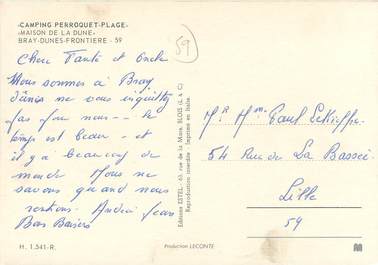 «CAMPING PERROQUET-PLAGE»
«MAISON DE LA DUNE»
BRAY-DUNES-FRONTIERE - 59
59
Cher Tante et Oncle
Nous sommes à Bray
dunes ne vous inquiétez
pas pour nous -- le
temps est beau - et
il y a beaucoup de
monde Nous ne
savons quand nous
rentrons. André Jean
Bons Baisers
H. 1.541-R.
Editions ESTEL - 63, rue de la Mare, BLOIS (L. & C.)
Reproduction interdite - Imprimé en Italie
Production LECONTE
Mr Mme Paul
54 Rue de La Bassée
Lille
59